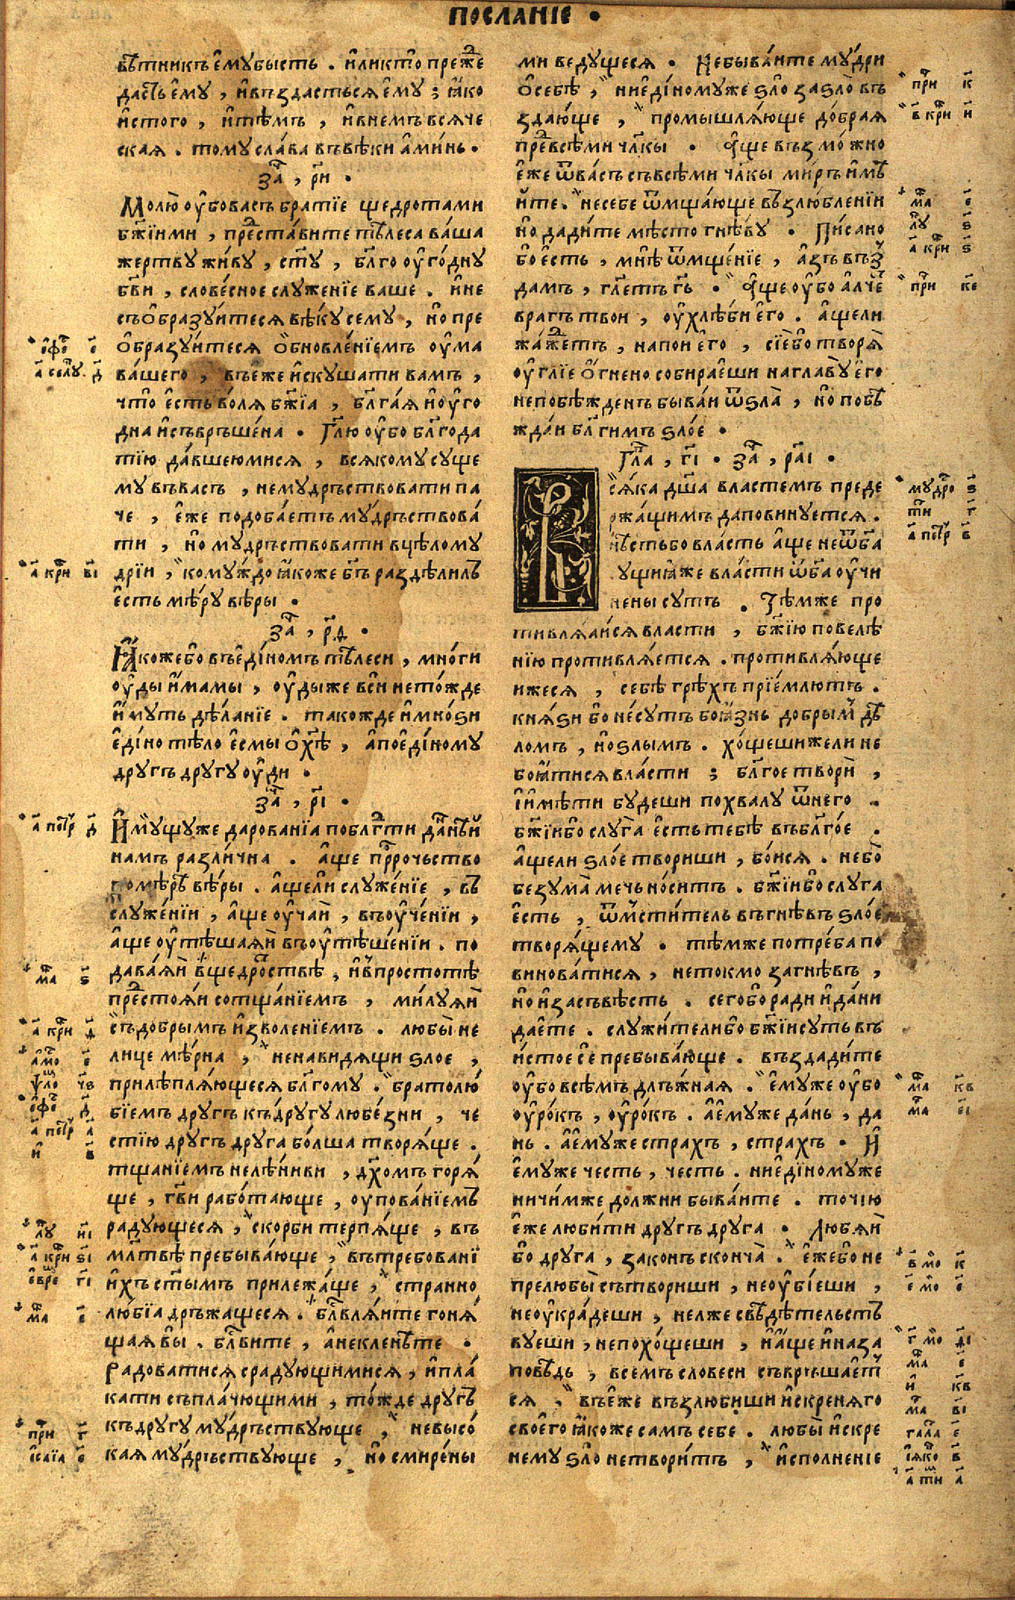 ПОСЛАНІЕ •
вѣтникъ ёмубысть . и҆ликто преⷤе
дастъ ёму , и҆въздастьсѧ ёму ; ꙗ҆ко
и҆стого , и҆тѣмъ , и҆внемъ всѧче
скаѧ . тому слава въвѣки а҆минь .
заⷱ , р҃и •
Молю ѹ҆бовасъ братїе щедротами
бж҃їими , преⷣставите тѣлеса ваша
жертву живу , ст҃у , бл҃го ѹ҆годну
бг҃ви , словесное служенїе ваше . и҆не
съѻбразуитесѧ вѣку сему , но пре
ѻбразуитесѧ ѻбновленїемъ ѹ҆ма
вашего , въеже и҆скушати вамъ ,
что є҆сть волѧ бж҃їа , бл҃гаѧ и҆ѹ҆го
дна и҆съвръшена • Гл҃ю ѹ҆бо бл҃года
тїю давшеюмисѧ , всѧкому суще
му въвасъ , немудръствовати па
че , є҆же подобаетъ мудръствова
ти , но мудръствовати вцѣлому
дрїи , комуждо ꙗ҆коже бг҃ъ раздѣлилъ
є҆сть мѣру вѣры .
заⷱ , р҃д •
Ꙗ҆кожебо въединомъ тѣлеси , многи
ѹ҆ды и҆мамы , ѹ҆дыже вси нетожде
и҆муть дѣланїе . такожде и҆мноѕи
є҆дино тѣло є҆смы ѻ хѣ҃ , а҆поединому
другъ другу ѹ҆ди .
заⷱ , р҃і •
И҆мущуже дарованїа поблг҃ти данѣй
намъ различна . а҆ще прⷪ҇рочьство
помѣрѣ вѣры . а҆щели служенїе , въ
служенїи , а҆ще ѹ҆чай , въѹ҆ченїи ,
а҆ще ѹ҆тѣшаѧй въѹ҆тѣшенїи . по
даваѧй вщедрⷪ҇ствѣ , и҆въпростотѣ
преⷣстоѧи сотщанїемъ , милуѧй
съдобрымъ и҆зволенїемъ . любы не
лицемѣрна , ненавидѧщи ѕлое ,
прилѣплѧющесѧ бл҃гому . братолю
бїемъ другъ къдругу любезни , че
стїю другъ друга болша творѧще .
тщанїемъ нелѣниви , дх҃омъ горѧ
ще , гв҃и работающе , упованїемъ
радующесѧ , скорби терпѧще , въ
мл҃твѣ пребывающе , вътребованї
и҆хъ ст҃ымъ прилежаще , странно
любїа дръжащесѧ . бл҃влѧите гонѧ
щаѧ вы . бл҃вите , а҆неклените .
Радоватисѧ срадующимисѧ , и҆пла
кати съплачющими , тожде другъ
къдругу мудръствующе , невысо
каѧ мудръствующе , но смирены
ѻ҆фе е
а҃ селу д
а҃ крⷩ҇и в҃і
а҃ петр д
ма ѕ
а҃ крⷩ҇и
амо
ефе д
а҃ петр а
и҃ в
лу и҃і
а҃ крⷩ҇и ѕ҃і
євре г҃і
ма е
при г
исаїа е
ми ведущесѧ . Небываите мудри
ѻ҆себѣ , ниединомуже ѕло заѕло въ
здающе , промышлѧюще добраѧ
преⷣвсѣми чл҃кы . А҆ще възможно
є҆же ѿвасъ съвсѣми чл҃кы миръ и҆мѣ
йте . несебе ѿмщающе възлюбленїи
но дадите мѣсто гнѣву . Писано
бо є҆сть , мнѣ ѿмщенїе , а҆зъ възⷣ
дамъ , гл҃етъ г҃ь . А҆ще ѹ҆бо а҆лчеⷮ
врагъ твои , ѹ҆хлѣби є҆го . а҆щели
жаⷤжетъ , напои є҆го , сїебо творѧ
ѹ҆глїе ѻ҆гнено собираеши наглаву є҆го
непобѣжденъ бываи ѿѕла , но побѣ
ждаи бл҃гимъ ѕлое .
Глⷡ҇а , г҃і . заⷱ , р҃аі .
сѧка дш҃а властемъ преде
ржащимъ даповинуетсѧ .
нѣстьбо власть а҆ще неѿбг҃а
ущиꙗже власти ѿбг҃а ѹ҆чи
нены суть . Тѣмже про
тивлѧаисѧ власти , бж҃їю повелѣ
нїю противлѧетсѧ . противлѧюще
ижесѧ , себѣ грѣхъ прїемлютъ .
кнѧѕи бо несутъ боꙗзнь добрыⷨ дѣ
ломъ , но ѕлымъ . хощешижели не
боꙗтисѧ власти ; бл҃гое твори ,
и҆имѣти будеши похвалу ѿнего .
бж҃їибо слуга є҆сть тебѣ въбл҃гое .
а҆щели ѕлое твориши , боисѧ . небо
безума мечь носитъ . бж҃їибо слуга
є҆сть , ѿмⷭ҇титель въгнѣвъ ѕлое
творѧщему . тѣмже потреба по
виноватисѧ , нетокмо загнѣвъ ,
но и҆засъвѣсть . сегобо ради и҆дани
даете . служителибо бж҃їи суть въ
и҆стое се пребывающе . въздадите
ѹ҆бо всѣмъ длъжнаѧ . є҆муже ѹ҆бо
ѹ҆рокъ , ѹ҆рокъ . а҆ємуже дань , да
нь . а҆ємуже страхъ , страхъ . И҆
є҆муже честь , честь . ниединомуже
ничимже должни бываите . точїю
є҆же любити другъ друга . Любѧй
бо друга , законъ сконча . є҆жебо не
прелюбы сътвориши , неѹ҆бїеши ,
неѹ҆крадеши , нелже свѣдѣтельстъ
вуеши , непохощеши , и҆а҆ще и҆ напо
повѣдь , всемъ словеси съвръшаетⷭ҇
сѧ , въеже възлюбиши и҆скренѧго
своего ꙗ҆коже самъ себе . любы и҆скре
нему ѕло нетворитъ , и҆сполненїе
при к
в҃ крⷩ҇и и
ма е
лу ѕ
а҃ крⷩ҇и ѕ
при ке
мудро ѕ
ти г
а҃ петр в
ма кв
ма е҃і
в҃ мо к
е҃ мо е
г҃ мо д҃і
ма е
и҃ кв
ма в҃і
гала е
їѧко в
а҃ ти а